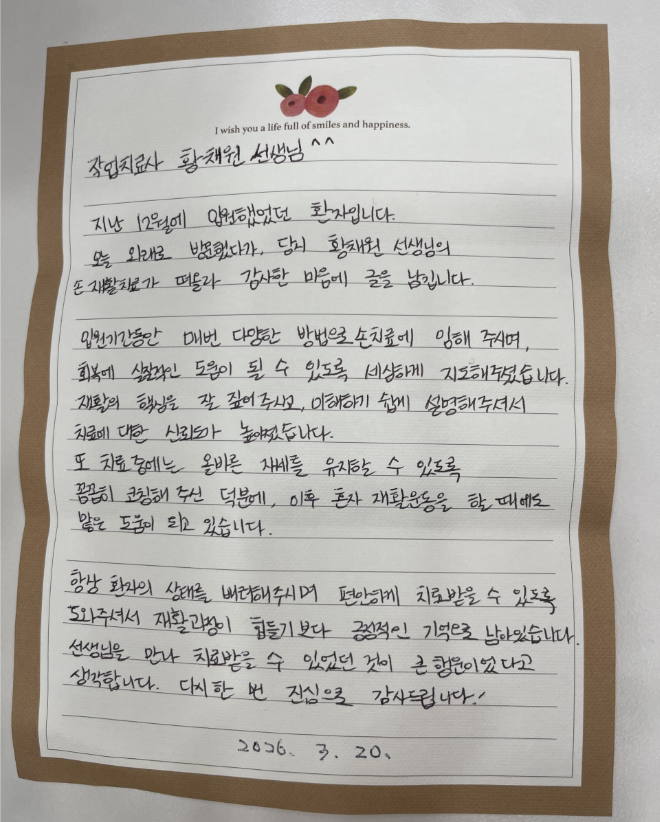 I wish you a life full of smiles and happiness.
작업치료사 황채원 선생님 ^^
지난 12월에 입원했었던 환자입니다.
오늘 외래로 방문했다가, 당시 황채원 선생님의
손 재활치료가 떠올라 감사한 마음에 글을 남깁니다.
입원기간동안 매번 다양한 방법으로 손치료에 임해 주시며,
회복에 실질적인 도움이 될 수 있도록 세심하게 지도해주셨습니다.
재활의 핵심을 잘 짚어 주시고, 이해하기 쉽게 설명해주셔서
치료에 대한 신뢰도가 높아졌습니다.
또 치료 중에는 올바른 자세를 유지할 수 있도록
꼼꼼히 코칭해 주신 덕분에, 이후 혼자 재활운동을 할 때에도
많은 도움이 되고 있습니다.
항상 환자의 상태를 배려해주시며 편안하게 치료받을 수 있도록
도와주셔서 재활과정이 힘들기보다 긍정적인 기억으로 남아있습니다.
선생님을 만나 치료받을 수 있었던 것이 큰 행운이었다고
생각합니다. 다시 한 번 진심으로 감사드립니다!
2026. 3. 20.